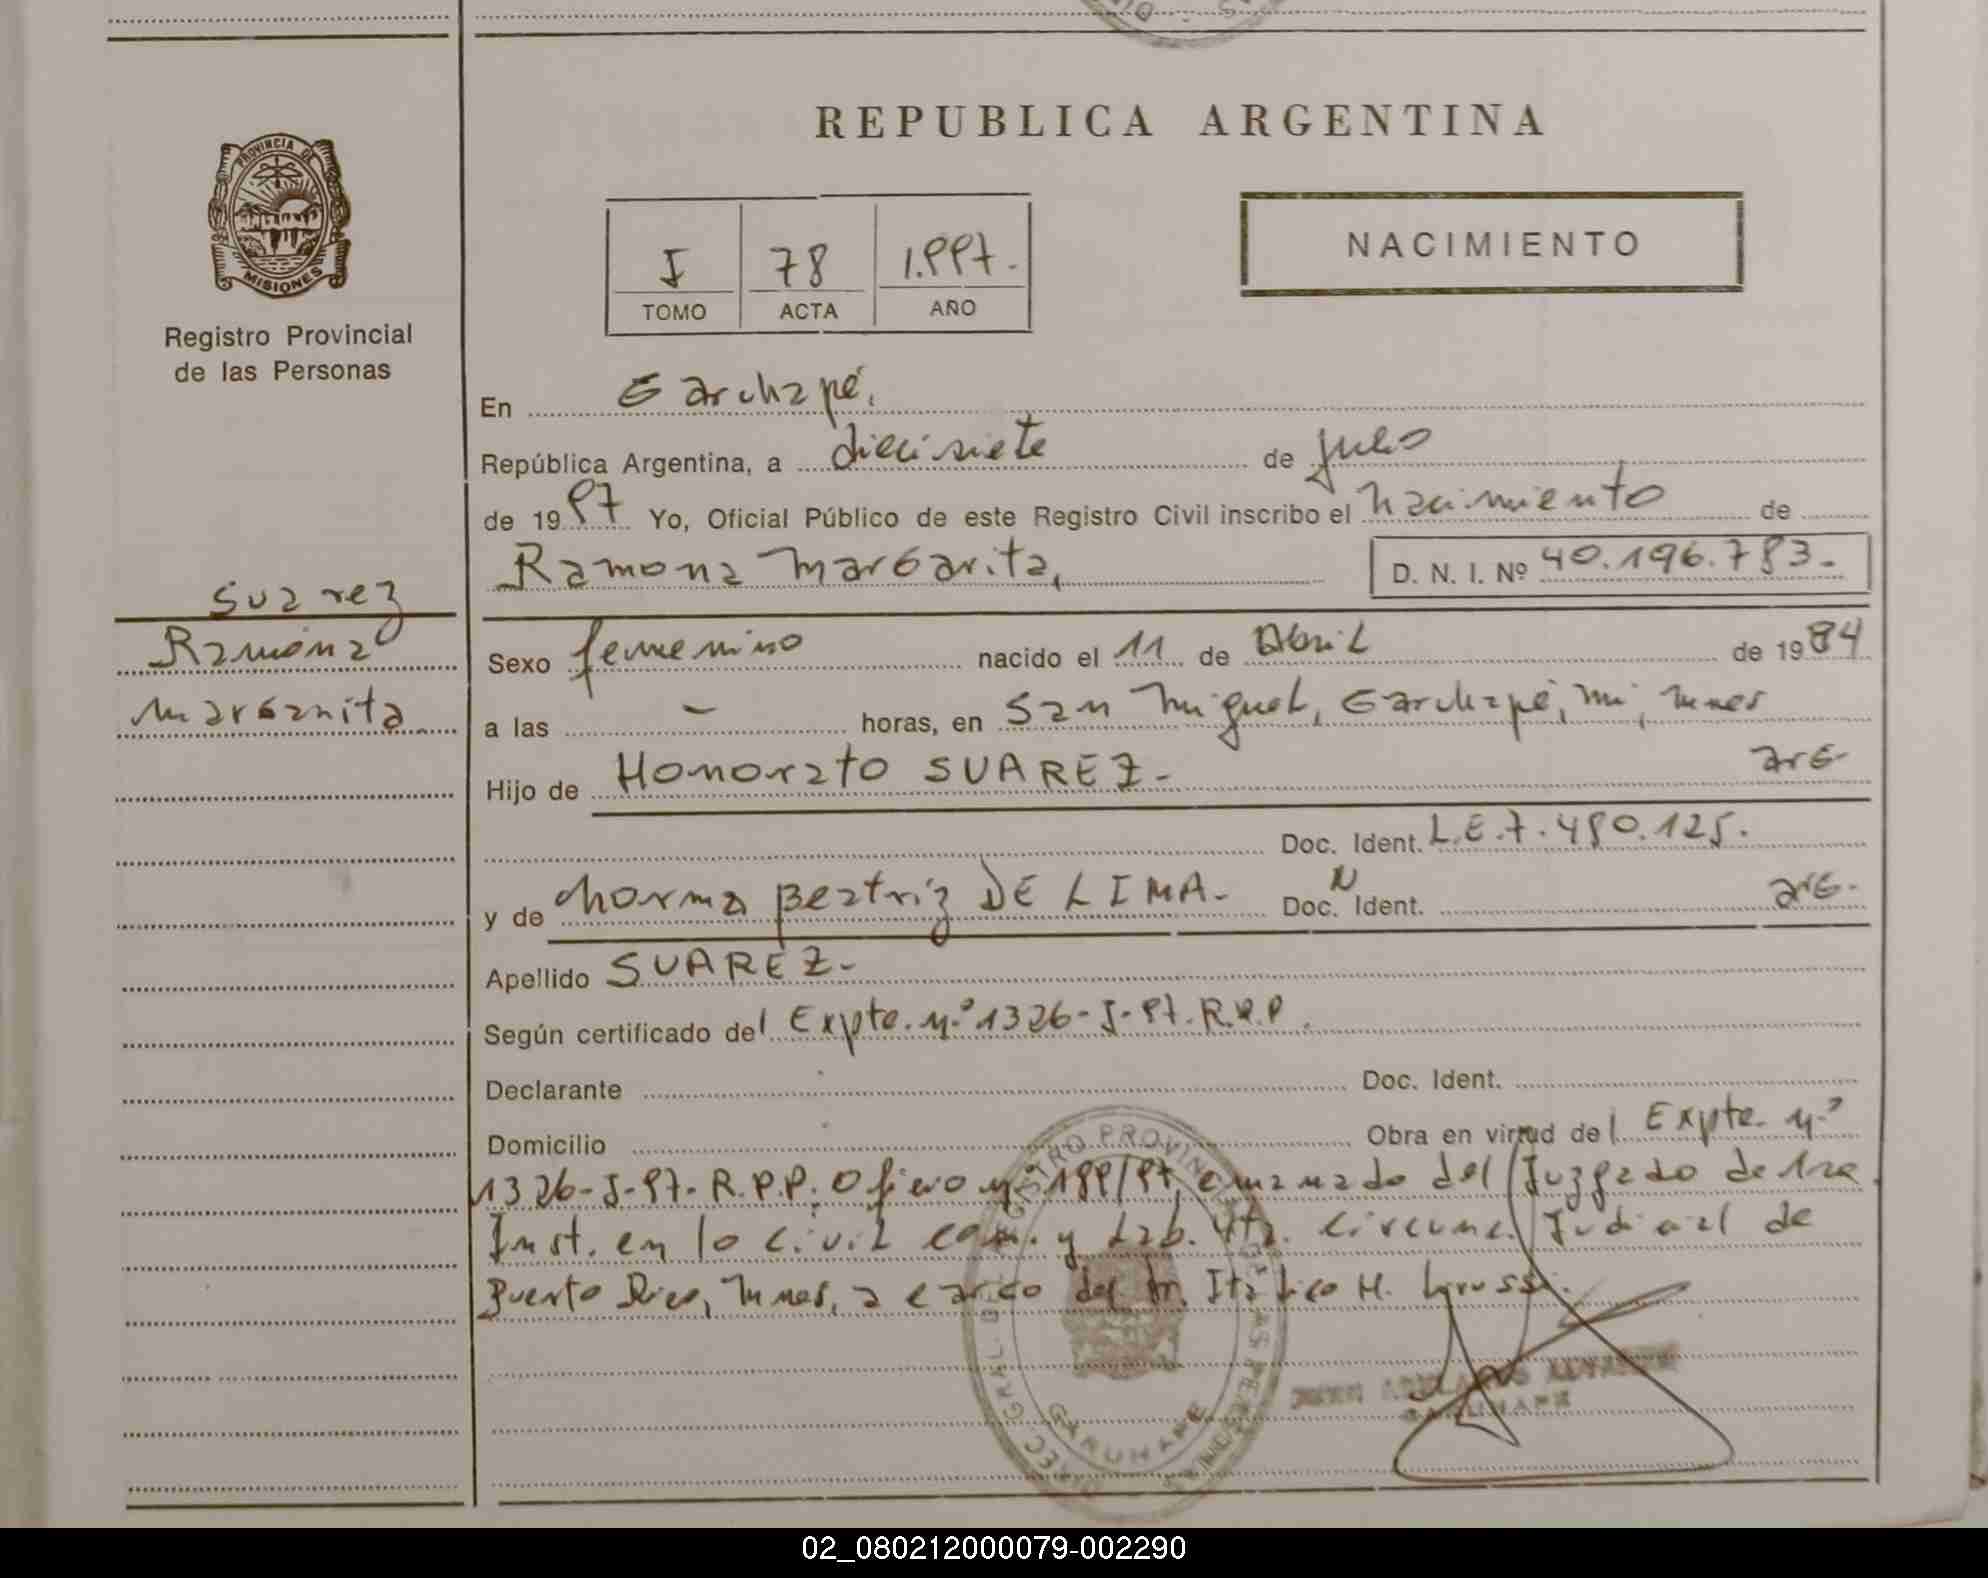 REPUBLICA ARGENTINA
PROVINCIA DE
MISIONES
Registro Provincial
de las Personas
I 78 1.997.-
TOMO ACTA AÑO
NACIMIENTO
En Garuhapé,
República Argentina, a diecisiete de julio
de 1997 Yo, Oficial Público de este Registro Civil inscribo el Nacimiento de
Ramona Margarita, D. N. I. Nº 40.196.783.-
Suarez
Ramona
Margarita
Sexo femenino nacido el 11 de Abril de 1984
a las - horas, en San Miguel, Garuhapé, Mnes
Hijo de Honorato SUAREZ- arg-
Doc. Ident. L.E.7.480.125.
y de Norma Beatriz DE LIMA.- Doc. Ident. N arg-
Apellido SUAREZ-
Según certificado del Expte. nº 1326-J-97.R.P.P.
Declarante Doc. Ident.
Domicilio Obra en virtud del Expte. nº
1326-J-97-R.P.P. Oficio nº 199/97, emanado del Juzgado de 1ra.
Inst. en lo civil com. y Lab. 4ta. circunc. Judicial de
Puerto Rico, Mnes, a cargo del Dr. Itálico H.
GARUHAPE
GARUHAPE
02_080212000079-002290